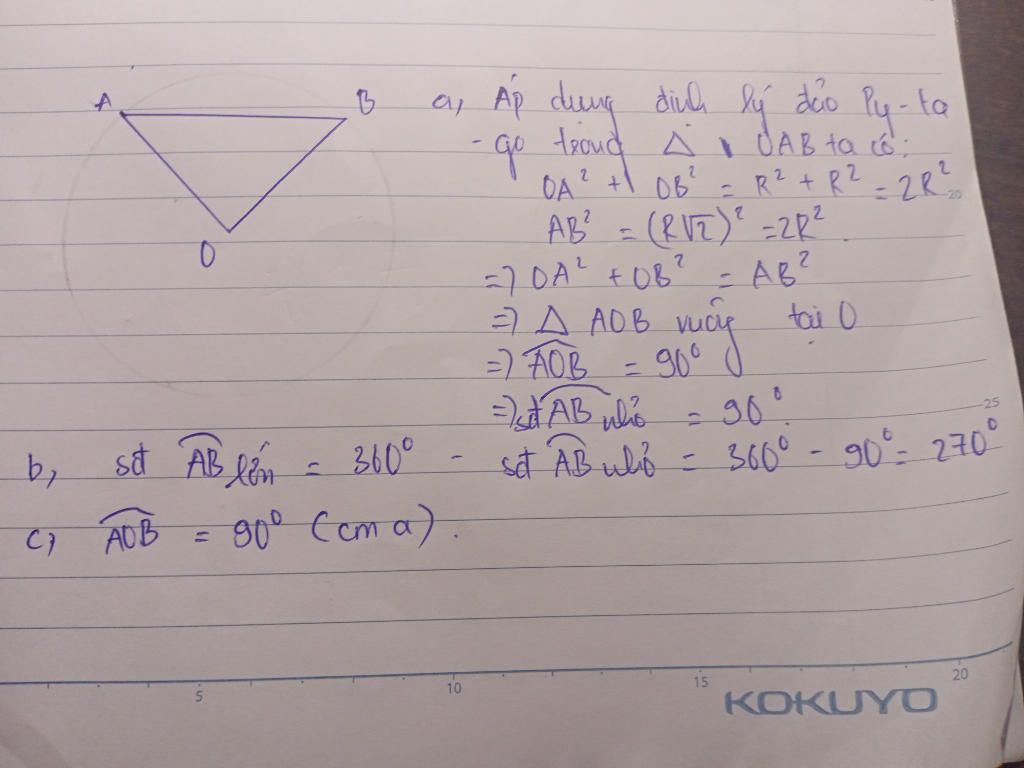 A
B
O
a, Áp dụng định lý đảo Py-ta
-go trong Δ OAB ta có:
OA² + OB² = R² + R² = 2R²
20
AB² = (R√2)² = 2R².
=> OA² + OB² = AB²
=> Δ AOB vuông tại O
=> AOB = 90°
=> sđ AB nhỏ = 90°.
25
b, sđ AB lớn = 360° - sđ AB nhỏ = 360° - 90° = 270°
c, AOB = 90° (cm a).
5 10 15 20
KOKUYO